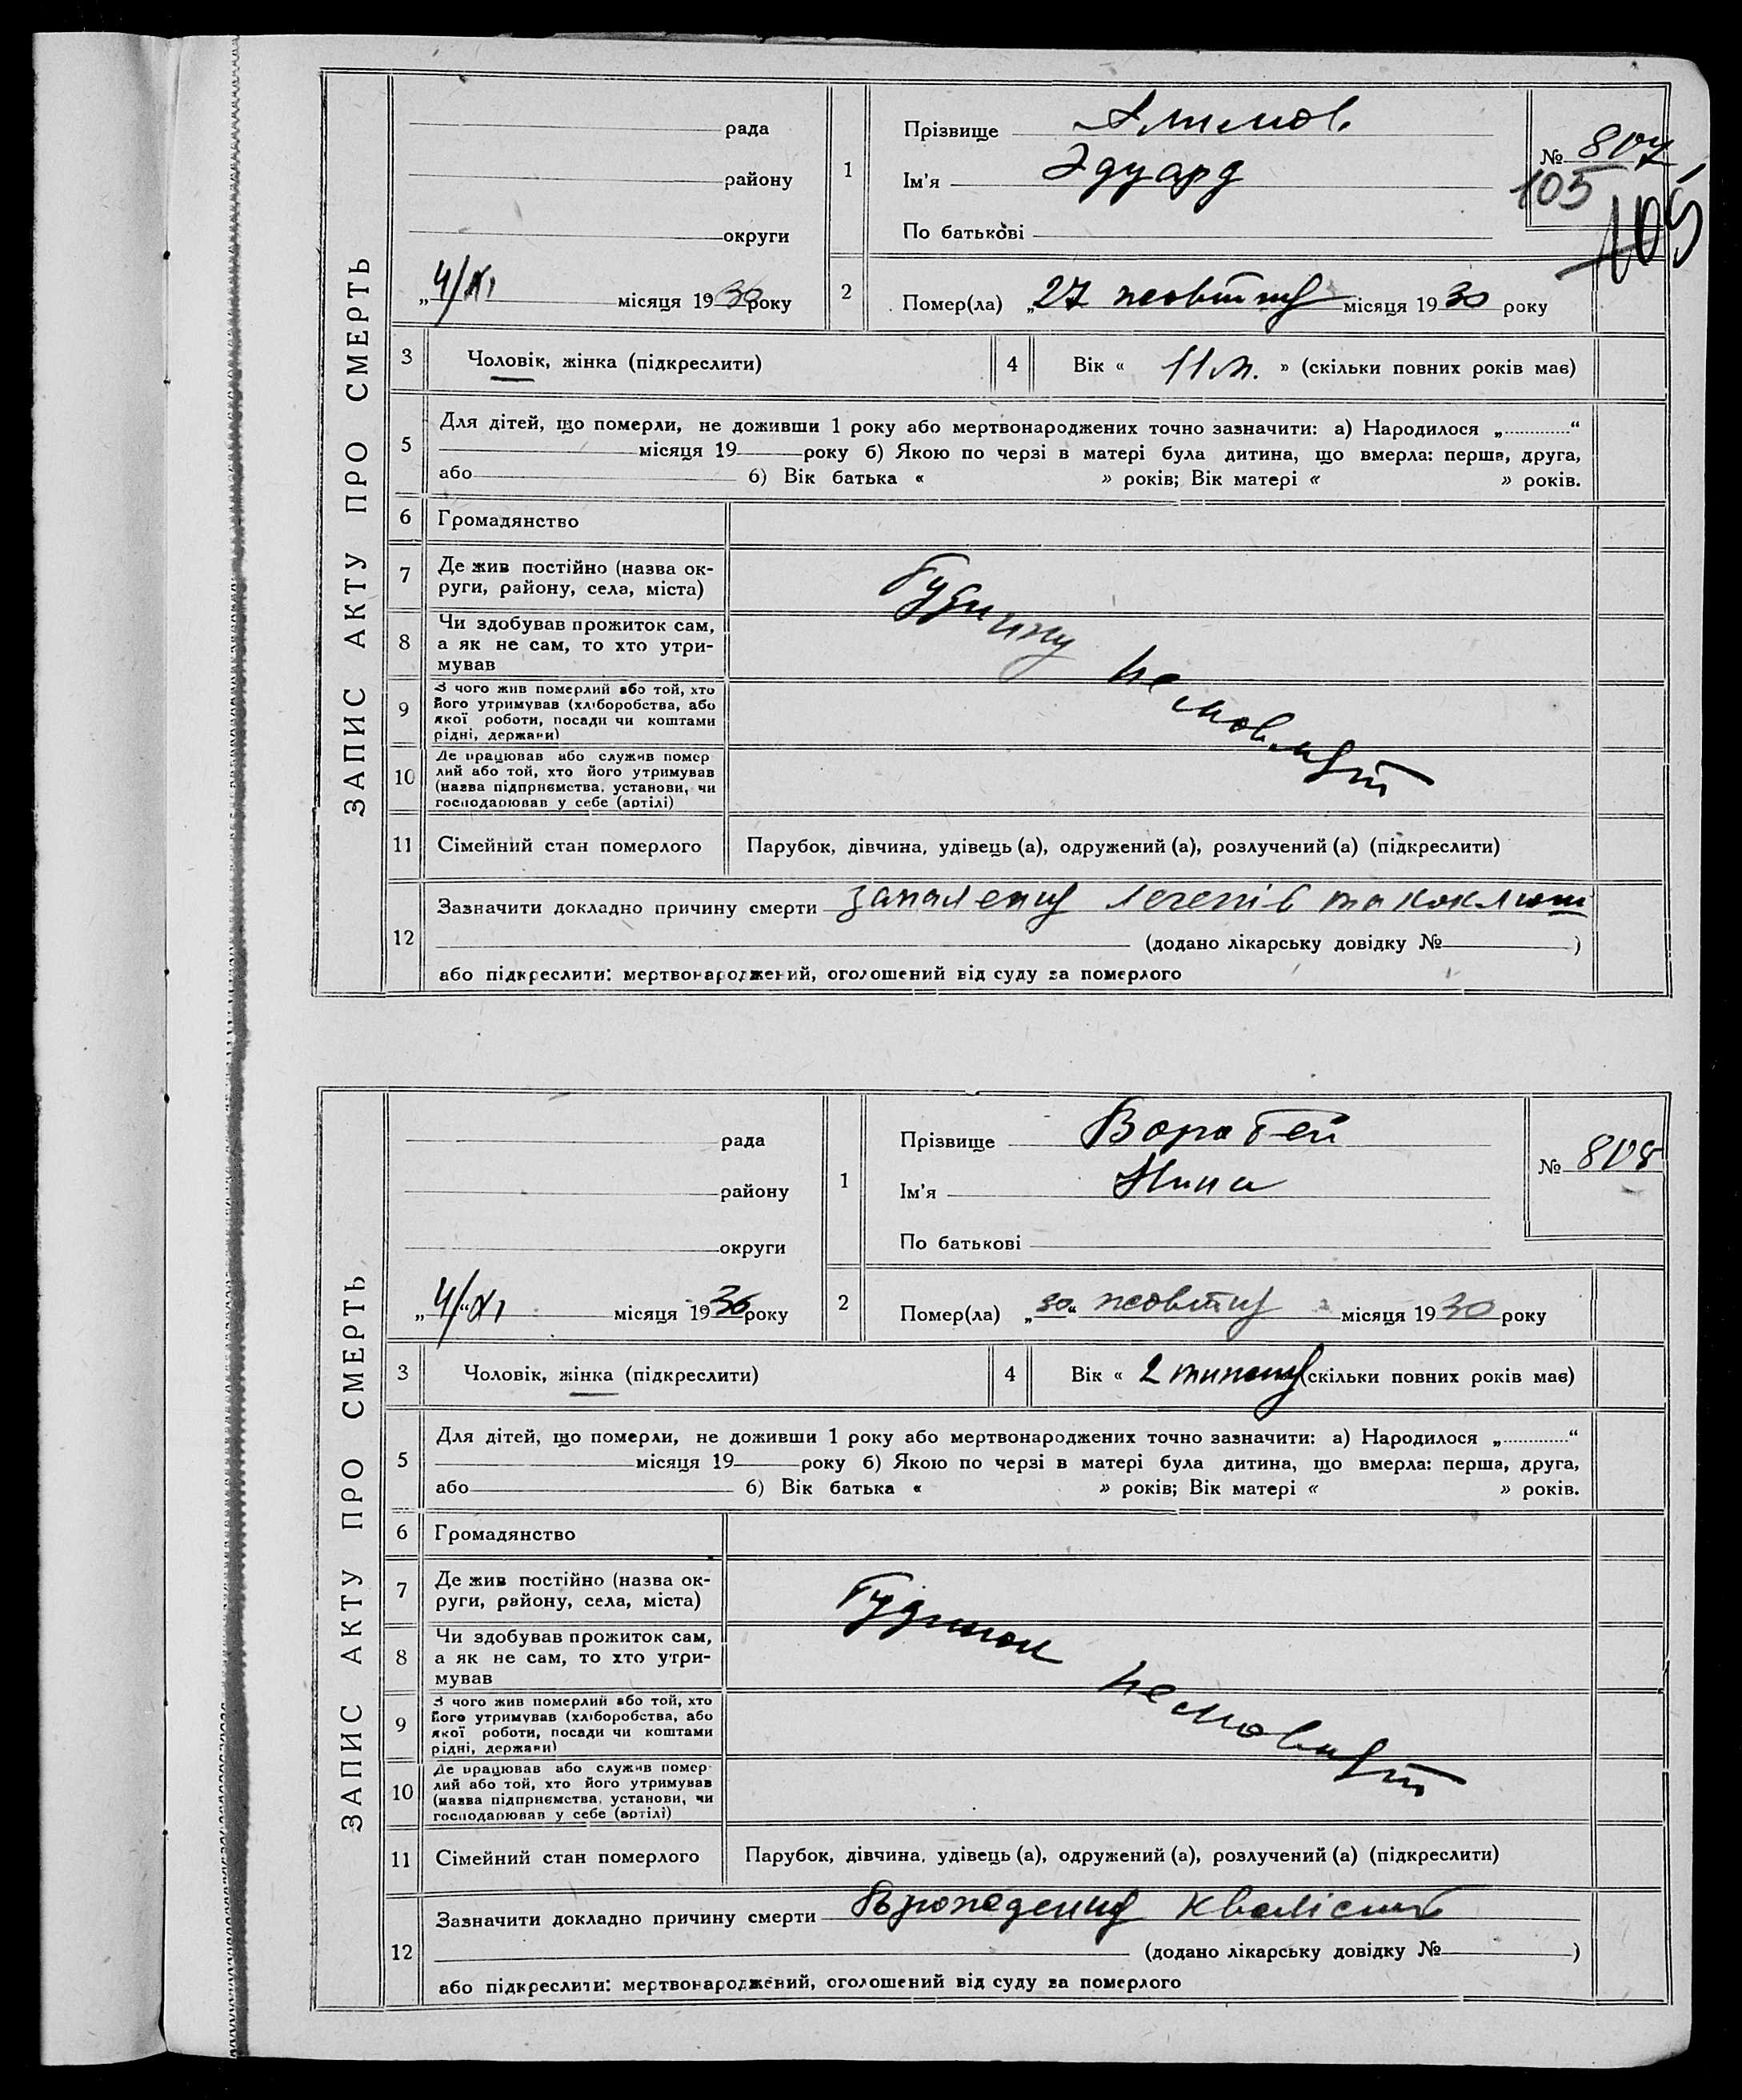 ЗАПИС АКТУ ПРО СМЕРТЬ
рада
району
округи
„4/XI місяця 1930 року
1
Прізвище
Ім'я Эдуард
По батькові
№ 807
105
105
2
Помер(ла) „27 жовтня місяця 1930 року
3 Чоловік, жінка (підкреслити)
4 Вік « 11 м. » (скільки повних років має)
5 Для дітей, що померли, не доживши 1 року або мертвонароджених точно зазначити: а) Народилося „ “
місяця 19 року б) Якою по черзі в матері була дитина, що вмерла: перша, друга,
або б) Вік батька « » років; Вік матері « » років.
6 Громадянство
7 Де жив постійно (назва ок-
руги, району, села, міста)
8 Чи здобував прожиток сам,
а як не сам, то хто утри-
мував
9 З чого жив померлий або той, хто
його утримував (хліборобства, або
якої роботи, посади чи коштами
рідні, держави)
10 Де працював або служив помер-
лий або той, хто його утримував
(назва підприємства, установи, чи
господарював у себе (артілі)
Будинку немовлят
11 Сімейний стан померлого Парубок, дівчина, удівець (а), одружений (а), розлучений (а) (підкреслити)
12 Зазначити докладно причину смерти запалення легенів та коклюш
(додано лікарську довідку № )
або підкреслити: мертвонароджений, оголошений від суду за померлого
ЗАПИС АКТУ ПРО СМЕРТЬ
рада
району
округи
„4/“XI місяця 1930 року
1
Прізвище Воробей
Ім'я Нина
По батькові
№ 808
2
Помер(ла) „30“ жовтня місяця 1930 року
3 Чоловік, жінка (підкреслити)
4 Вік « 2 тижні (скільки повних років має)
5 Для дітей, що померли, не доживши 1 року або мертвонароджених точно зазначити: а) Народилося „ “
місяця 19 року б) Якою по черзі в матері була дитина, що вмерла: перша, друга,
або б) Вік батька « » років; Вік матері « » років.
6 Громадянство
7 Де жив постійно (назва ок-
руги, району, села, міста)
8 Чи здобував прожиток сам,
а як не сам, то хто утри-
мував
9 З чого жив померлий або той, хто
його утримував (хліборобства, або
якої роботи, посади чи коштами
рідні, держави)
10 Де працював або служив помер-
лий або той, хто його утримував
(назва підприємства, установи, чи
господарював у себе (артілі)
Будинок немовлят
11 Сімейний стан померлого Парубок, дівчина, удівець (а), одружений (а), розлучений (а) (підкреслити)
12 Зазначити докладно причину смерти Врождения кволість
(додано лікарську довідку № )
або підкреслити: мертвонароджений, оголошений від суду за померлого